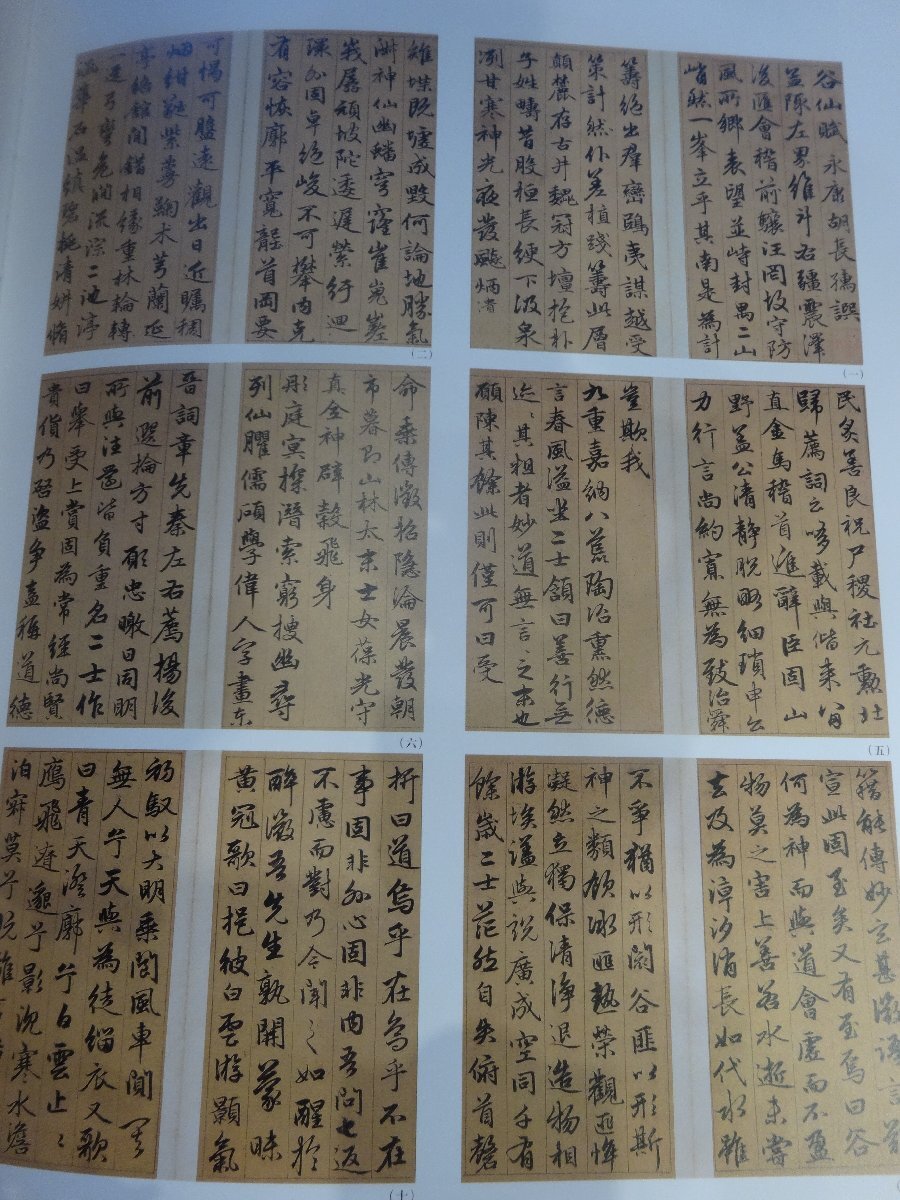 谷仙賦 永康胡長孺譔
益陬左界維斗右疆震澤
後匯會稽前驤汪罔圾守防
風所鄉表望並峙封禺二山
峭然一峯立乎其南是為計
籌絶出群巒鴟夷謀越受
策計然仆差植踐籌此層
顛麓存古井魏冠方壇抱朴
子姓疇昔股極長綆下汲泉
冽甘寒神光夜發颷炳渚
(一)
雉堞既墟成毀何論地勝氣
淋神仙幽蟠穹窿崔嵬嵳
峩孱頑坡陀逶遲縈紆迴
環外固卓絶峻不可攀內克
有容恢廓平寬豁首岡要
可惕可盤遠觀出日近矚稠
烟紺蕤紫萼鞠木芎蘭延
亭絡館間錯相緣重林輪轉
一逕弓彎危澗流淙二池渟
乃温鎮碧挺清姸脩
(二)
民炙善良祝尸稷社元勳壯
歸薦詞之載與偕来
直金馬稽首進辭臣固山
野蓋公清靜脫略細瑣申公
力行言尚約寡無為致治舜
豈欺我
九重嘉納八蕉陶冶熏然德
言春風溢坐二士頷曰善行無
迹〻其祖者妙道無言〻之末也
願陳其餘此則僅可曰受
(五)
命乘傳徵招隱淪晨發朝
市暮即山林太末士女葆光守
真全神辟穀飛身
彤庭冥探潛索窮搜幽尋
列仙臞儒碩學偉人字畫東
晉詞章先秦左右薦揚後
前選掄方寸願忠暾日同明
所與注籍皆負重名二士作
曰舉受上賞固為常經尚賢
貴貨乃啓盜爭盍稱道德
(六)
籍能傳妙玄甚微語言莫
宣此固至矣又有至焉曰谷
何為神而與道會虛而不盈
物莫之害上善若水逝未嘗
去及為漳汐消長如代水雖
不爭猶以形閡谷匪以形斯
神之類顧冰匪熱榮觀匪惟
凝然立獨保清淨退造物相
游埃與說廣成空同千有
餘歲二士茫然自失俯首罄
折曰道烏乎在烏乎不在
事固非外心固非內吾問七返
不慮而對乃今聞之如醒於
醉微吾先生孰開蒙昧
黃冠歌曰挹彼白雲游顥氣
初馭以大明乘閶風車閒
無人兮天與為徒緇衣又歌
曰青天澄廓兮白雲止〻
鷹飛遊邈兮影沈寒水澹
泊寂莫兮既雖
(十)